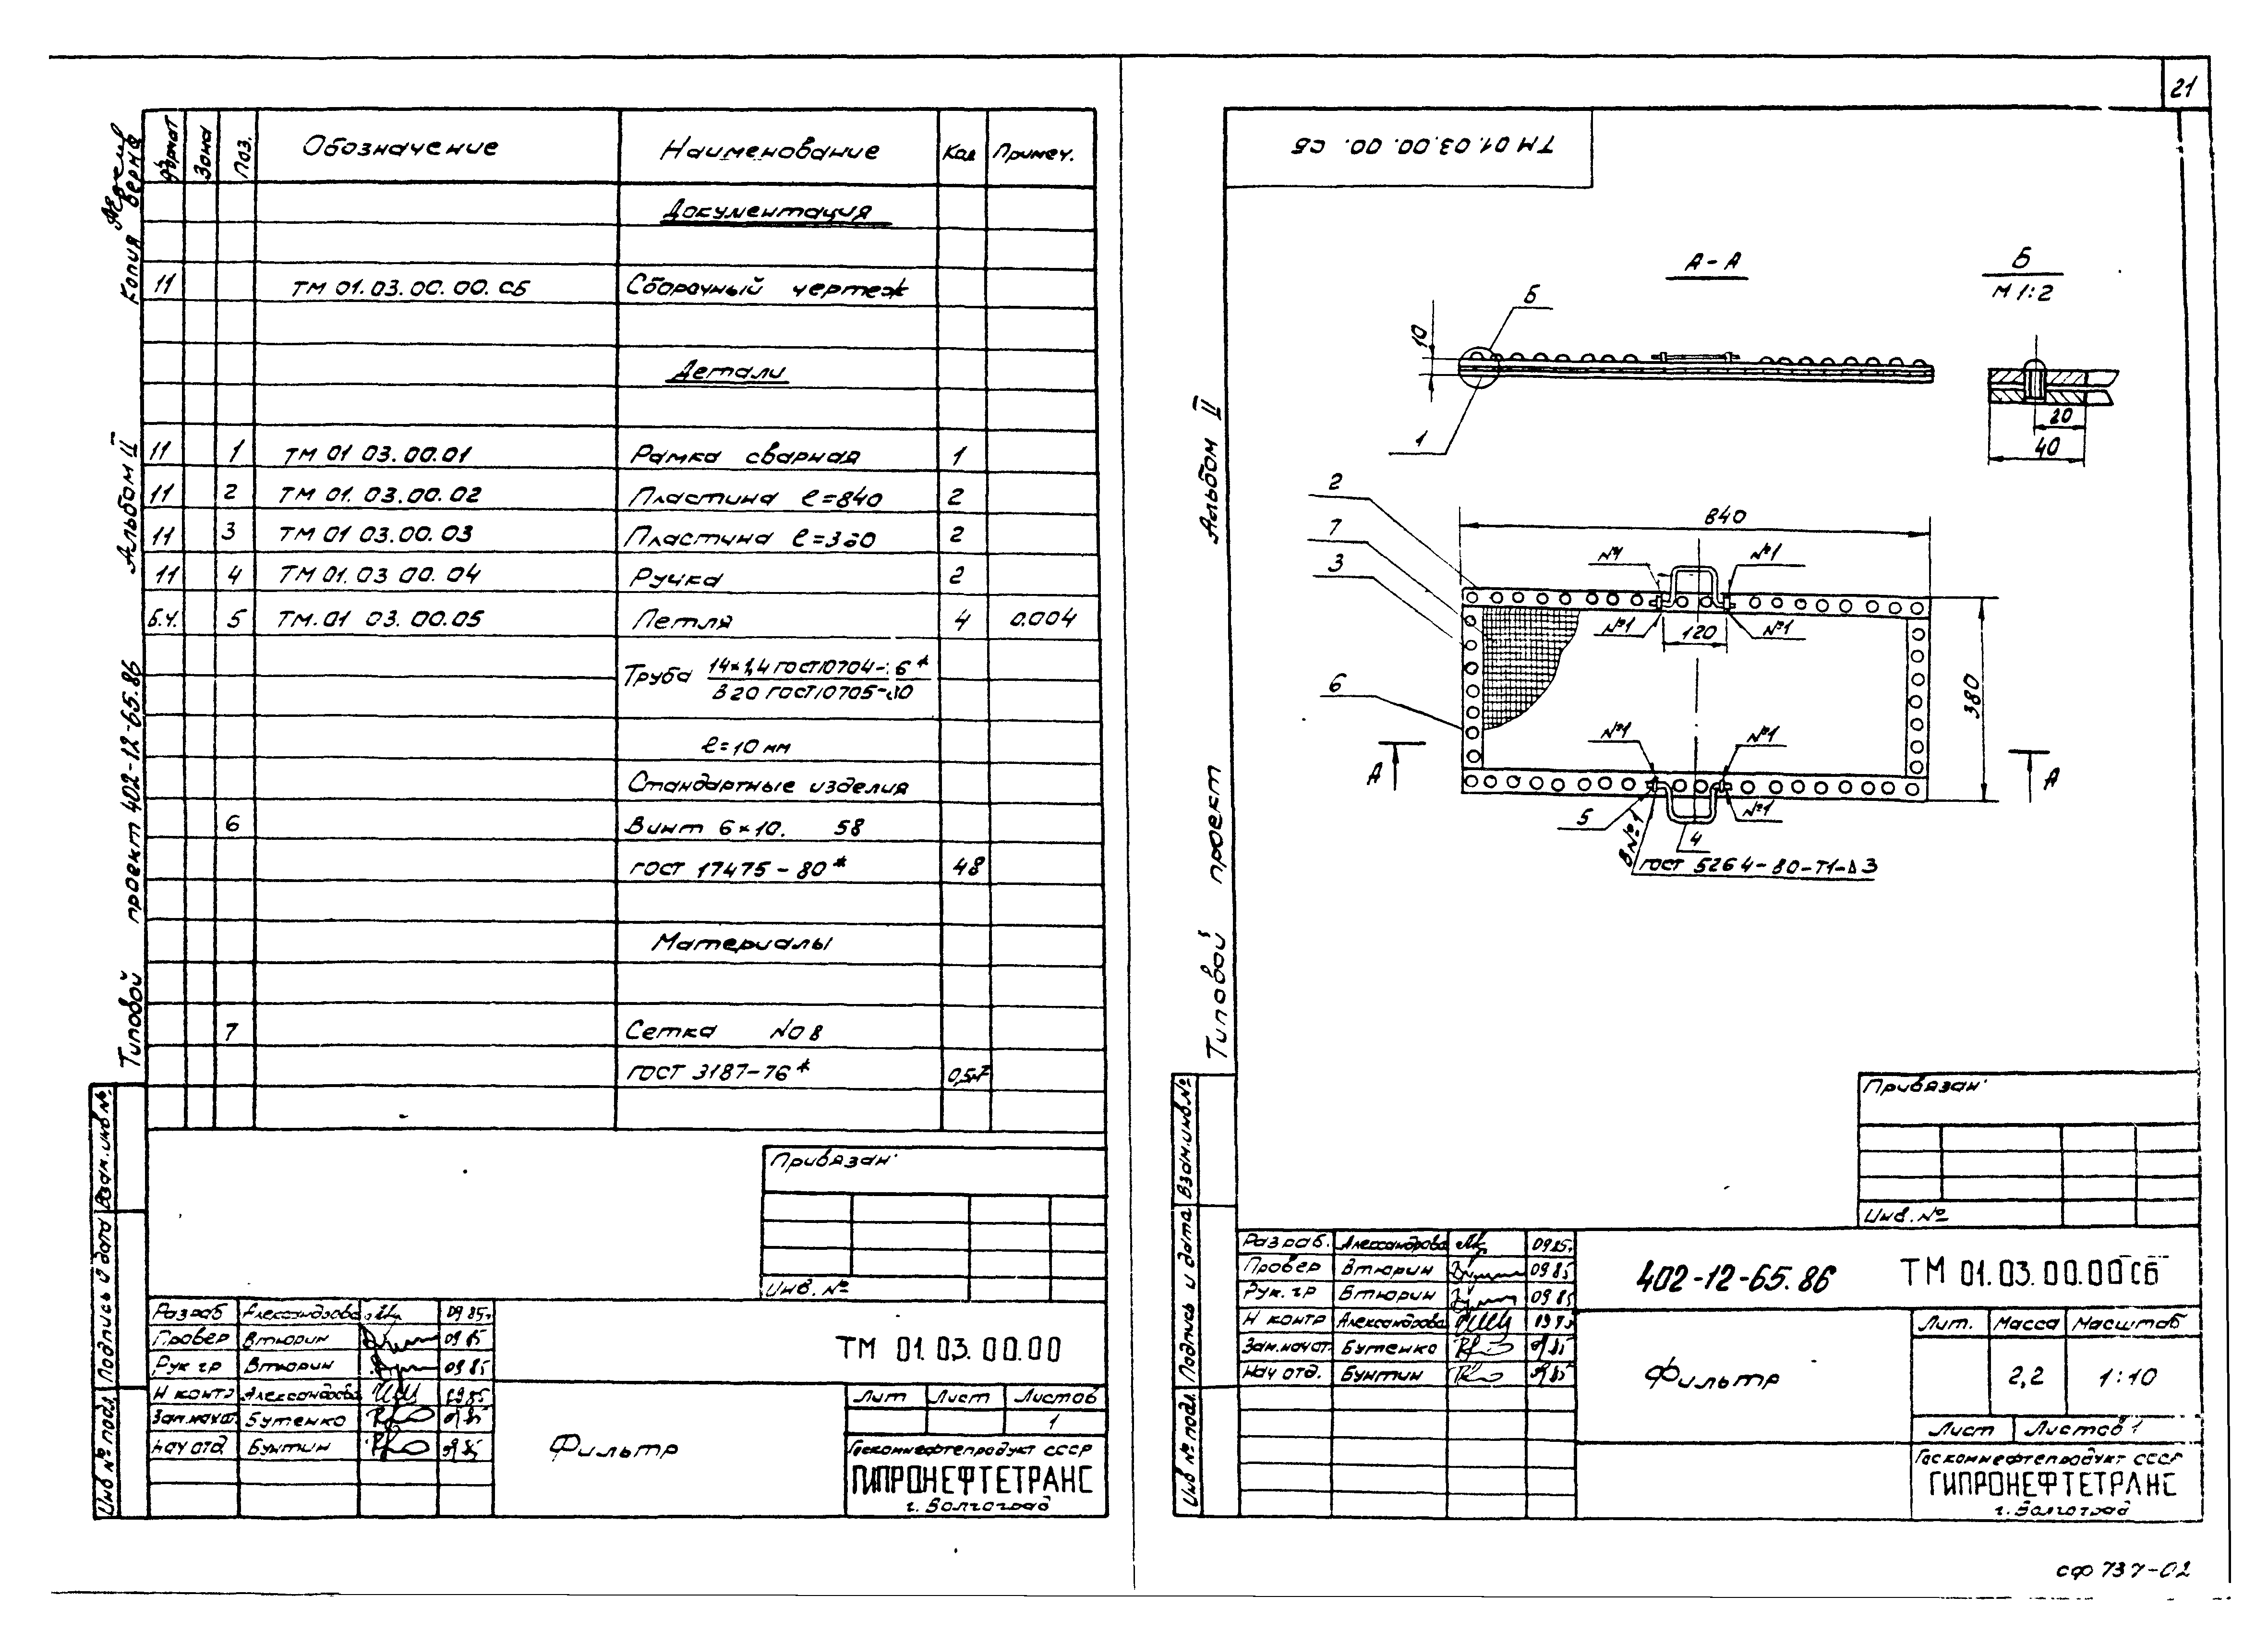 21
Копия верна
Альбом II
Типовой проект 402-12-65.86
Формат Зона Поз. Обозначение Наименование Кол Примеч.
Документация
11 ТМ 01.03.00.00.СБ Сборочный чертеж
Детали
11 1 ТМ 01 03.00.01 Рамка сварная 1
11 2 ТМ 01. 03.00.02 Пластина ℓ=840 2
11 3 ТМ 01 03.00.03 Пластина 2
11 4 ТМ 01.03 00.04 Ручка 2
Б.ч. 5 ТМ.01 03.00.05 Петля 4 0.004
Труба 14×1,4 ГОСТ 10704-
В20 ГОСТ 10705-
ℓ=10 мм
Стандартные изделия
6 Винт 6×10. 58
ГОСТ 17475-80* 48
Материалы
7 Сетка №08
ГОСТ 3187-76*
Привязан:
Инв. №
Взам. инв №
Подпись и дата
Инв № подл.
Разраб Александрова 09.85
Провер Втюрин 09 85
Рук гр Втюрин 09.85
Н контр Александрова 09.85
Зам.нач.от. Бутенко
Нач отд. Бунтин
ТМ 01.03.00.00
Фильтр
Лит Лист Листов
1
Госкомнефтепродукт СССР
ГИПРОНЕФТЕТРАНС
г. Волгоград
ТМ 01.03.00.00. СБ
Альбом II
Типовой проект
А-А
Б
М 1:2
Б
10
1
20
40
2
7
3
6
840
№1 №1
№1 120 №1
380
№1 №1
А А
5 №1
4
В №1
ГОСТ 5264-80-Т1-Δ3
Привязан:
Инв. №
Взам.инв.№
Подпись и дата
Инв № подл.
Разраб. Александрова 09.85
Провер Втюрин 09 85
Рук. гр Втюрин 09 85
Н контр Александрова
Зам.нач.от. Бутенко
Нач отд. Бунтин
402-12-65.86 ТМ 01.03.00.00 СБ
Фильтр
Лит. Масса Масштаб
2,2 1:10
Лист Листов 1
Госкомнефтепродукт СССР
ГИПРОНЕФТЕТРАНС
г. Волгоград
сф 737-02